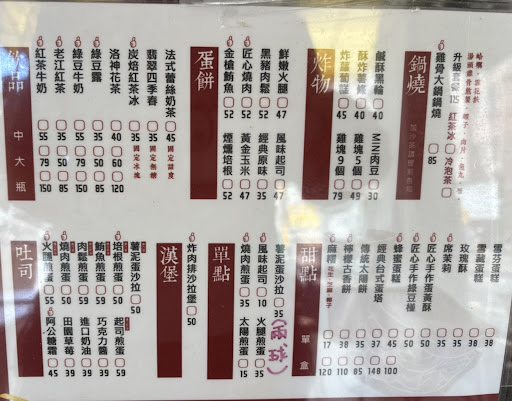 鍋燒
升級套餐 115 紅茶冰 冷泡茶
雞骨大鍋鍋燒 85
炸物
鹹酥黑輪 40
酥炸薯條 40
炸蘿蔔糕 45
MINI肉豆 30
雞塊5個 49
雞塊9個 79
蛋餅
鮮嫩火腿 47
黑豬肉鬆 52
匠心燒肉 52
金槍鮪魚 52
風味起司 47
經典原味 35
黃金玉米 47
煙燻培根 52
飲品
中 大 瓶
法式蕾絲奶茶 45 固定甜度
翡翠四季春 35 固定無糖
炭焙紅茶冰 35 固定冰塊
洛神花茶 40 60 120
綠豆露 35 55 85
綠豆牛奶 55 90 150
老江紅茶 35 50 79
紅茶牛奶 55 85 150
甜點
單 盒
雪芬蛋糕 38
雪藏蛋糕 38
玫瑰酥 38
席茉莉 50
匠心手作蛋黃酥 45
匠心手作綠豆椪 50
蜂蜜蛋糕 50 100
經典台式蛋塔 38 148
傳統太陽餅 35 85
檸檬古香餅 38 110
麻糬 17 120
單點
薯泥蛋沙拉 35
(兩球)
風味起司 10
燒肉煎蛋 35
火腿煎蛋 35
太陽煎蛋 15
漢堡
炸肉排沙拉堡 50
吐司
薯泥蛋沙拉 50
培根煎蛋 59
鮪魚煎蛋 59
肉鬆煎蛋 59
燒肉煎蛋 59
火腿煎蛋 50
起司煎蛋 59
巧克力醬 39
進口奶油 39
田園草莓 39
阿公糖霜 45